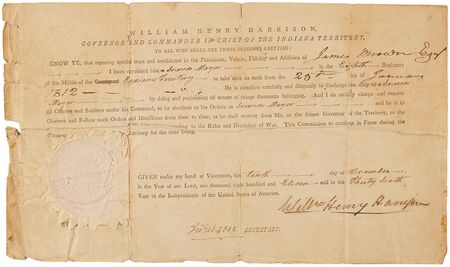 WILLIAM HENRY HARRISON,
GOVERNOR AND COMMANDER IN CHIEF OF THE INDIANA TERRITORY,
TO ALL WHO SHALL SEE THESE PRESENTS GREETING:
KNOW YE, that reposing special trust and confidence in the Patriotism, Valour, Fidelity and Abilities of James Brown Esqr
I have appointed him Mayor in the Regiment
of the Militia of the Indiana Territory to take rank as such from the 28th day of January
1812 He is therefore carefully and diligently to discharge the duty of
Mayor by doing and performing all manner of things thereunto belonging. And I do strictly charge and require
all Officers and Soldiers under his Command, to be obedient to his Orders as Mayor And he is to
Observe and Follow such Orders and Directions from time to time, as he shall receive from Me, or the future Governor of the Territory, or the
according to the Rules and Discipline of War. This Commission to continue in Force during the
Territory for the time being.
GIVEN under my hand at Vincennes, the tenth day of December
in the Year of our Lord, one thousand eight hundred and Eleven and in the Thirty Sixth
Year of the Independence of the United States of America.
Willm Henry Harrison
BY
SECRETARY.